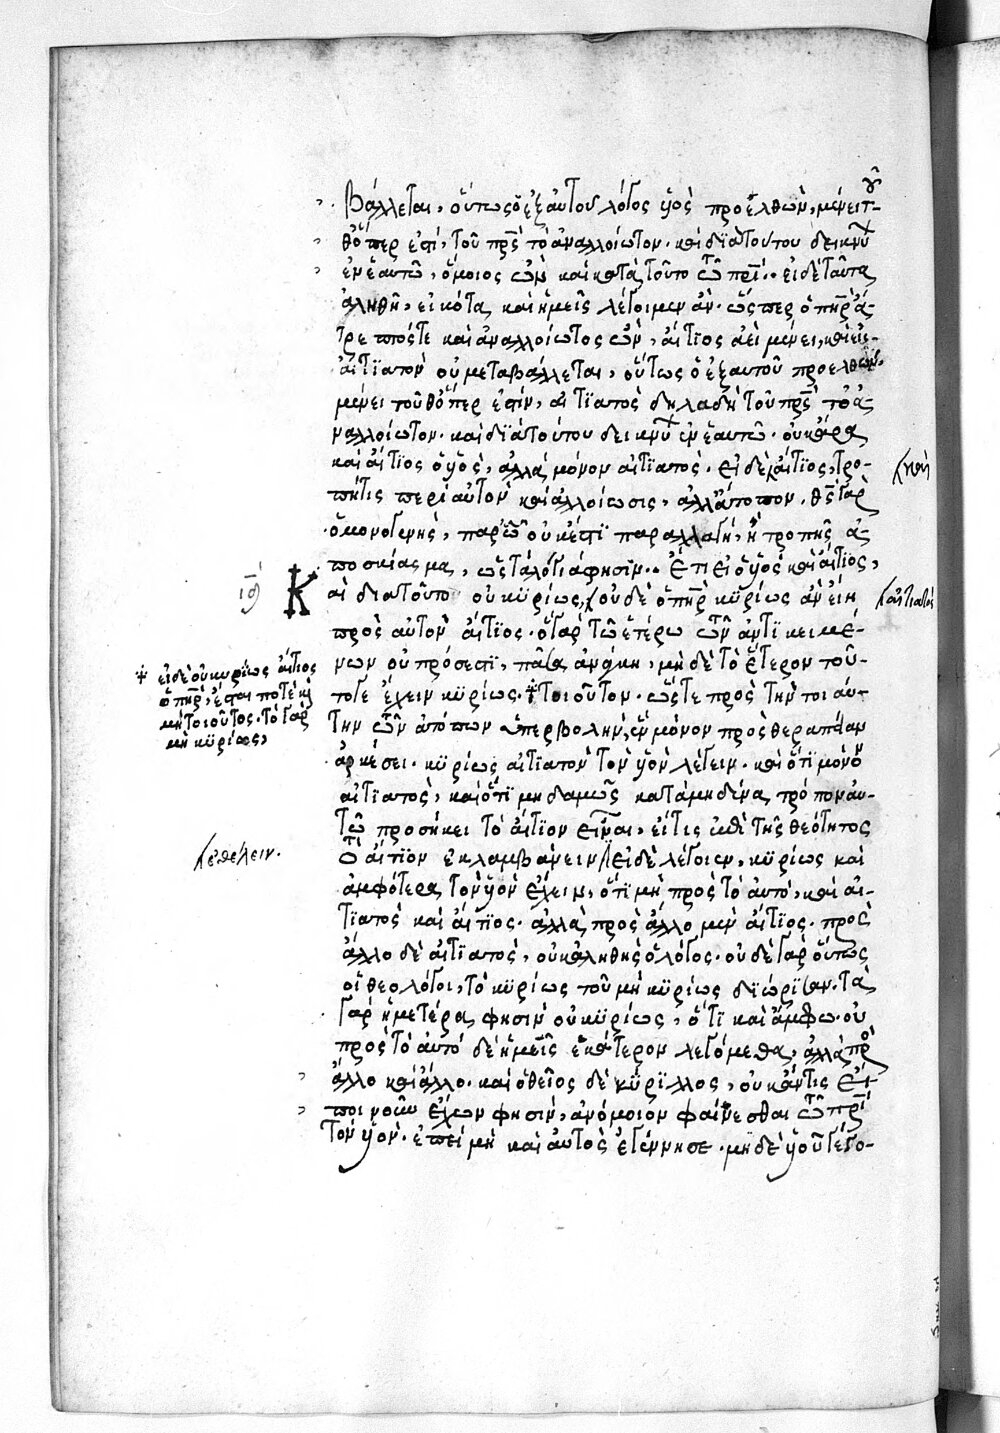 βάλλεται, οὕτως ὁ ἐξ αὐτοῦ λόγος υἱὸς προελθὼν, μένει τ-
θ' ὅπερ ἐστὶ, τοῦ πρς τὸ ἀναλλοίωτον. καὶ διὰ τούτου δεικνὺ
ἐν ἑαυτῶ, ὅμοιος ὢν καὶ κατὰ τοῦτο τῶ πρι. εἰ δὲ ταῦτα
ἀληθῆ, εἰκότα καὶ ἡμεῖς λέγοιμεν ἄν. ὥσπερ ὁ πηρ ἄ-
τρεπτός τε καὶ ἀναλλοίωτος ὢν, αἴτιος ἀεὶ μένει, καὶ εἰς
αἰτιατὸν οὐ μεταβάλλεται, οὕτως ὁ ἐξ αὐτοῦ προελθὼν
μένει τοῦθ' ὅπερ ἐστὶν, αἰτιατὸς δηλαδὴ τοῦ πρς τὸ ἀ-
ναλλοίωτον. καὶ διὰ τούτου δεικνὺ ἐν ἑαυτῶ. οὐκ ἄρα
καὶ αἴτιος ὁ υἱὸς, ἀλλὰ μόνον αἰτιατός. εἰ δὲ αἴτιος, τρο-
πή τις περὶ αὐτὸν καὶ ἀλλοίωσις, ἀλλ' ἄτοπον. θς γὰρ
ὁ μονογενὴς, παρ' ὧ οὐκ ἔστι παραλλαγὴ, ἢ τροπῆς ἀ-
ποσκίασμα, ὡς τὰ λόγιά φησιν. Ἔτι εἰ ὁ υἱὸς καὶ αἴτιος,
Καὶ διατοῦτο οὐ κυρίως, οὐδὲ ὁ πηρ κυρίως ἂν εἴη
πρὸς αὐτὸν αἴτιος. ὃ γὰρ τῶ ἑτέρω τῶν ἀντικειμέ-
νων οὐ πρόσεστι, πᾶσα ἀνάγκη, μηδὲ τὸ ἕτερον τοῦ-
το γε ἔχειν κυρίως. τοιοῦτον. ὥστε πρὸς τὴν τοιαύ-
την τῶν ἀτόπων ὑπερβολὴν, ἓν μόνον πρὸς θεραπείαν
ἀρκέσει. κυρίως αἰτιατὸν τὸν υἱὸν λέγειν. καὶ ὅτι μόνον
αἰτιατὸς, καὶ ὅτι μηδαμῶς κατὰ μηδένα τρόπον αὐ-
τῶ προσήκει τὸ αἴτιον εἶναι, εἴ τις ἐπὶ τῆς θεότητος
τὸ αἴτιον ἐκλαμβάνειν εἰ δὲ λέγοιεν, κυρίως καὶ
ἀμφότερα τὸν υἱὸν ἔχειν, ὅτι μὴ πρὸς τὸ αὐτὸ, καὶ αἰ-
τιατὸς καὶ αἴτιος. ἀλλὰ πρὸς ἄλλο μὲν αἴτιος. πρὸς
ἄλλο δὲ αἰτιατὸς, οὐκ ἀληθὴς ὁ λόγος. οὐδὲ γὰρ οὕτως
οἱ θεολόγοι, τὸ κυρίως τοῦ μὴ κυρίως διώρισαν. τὰ
γὰρ ἡμέτερα φησὶν οὐ κυρίως, ὅτι καὶ ἄμφω. οὐ
πρὸς τὸ αὐτὸ δὲ ἡμεῖς ἑκάτερον λεγόμεθα, ἀλλὰ πρὸ
ἄλλο καὶ ἄλλο. καὶ ὁ θεῖος δὲ κύριλλος, οὐκ ἄν τις εἴ-
ποι νοῦν ἔχων φησὶν, ἀνόμοιον φαίνεσθαι τῶ πρι
τὸν υἱὸν. ἐπεὶ μὴ καὶ αὐτὸς ἐγέννησε. μηδὲ υἱοῦ γέγο-
καὶ
ιθ
αἰτιατὸς
εἰ δὲ οὐ κυρίως αἴτιος
ὁ πηρ, ἔσται ποτὲ καὶ
μὴ τοιοῦτος. τὸ γὰρ
μὴ κυρίως,
ἐθέλειν.